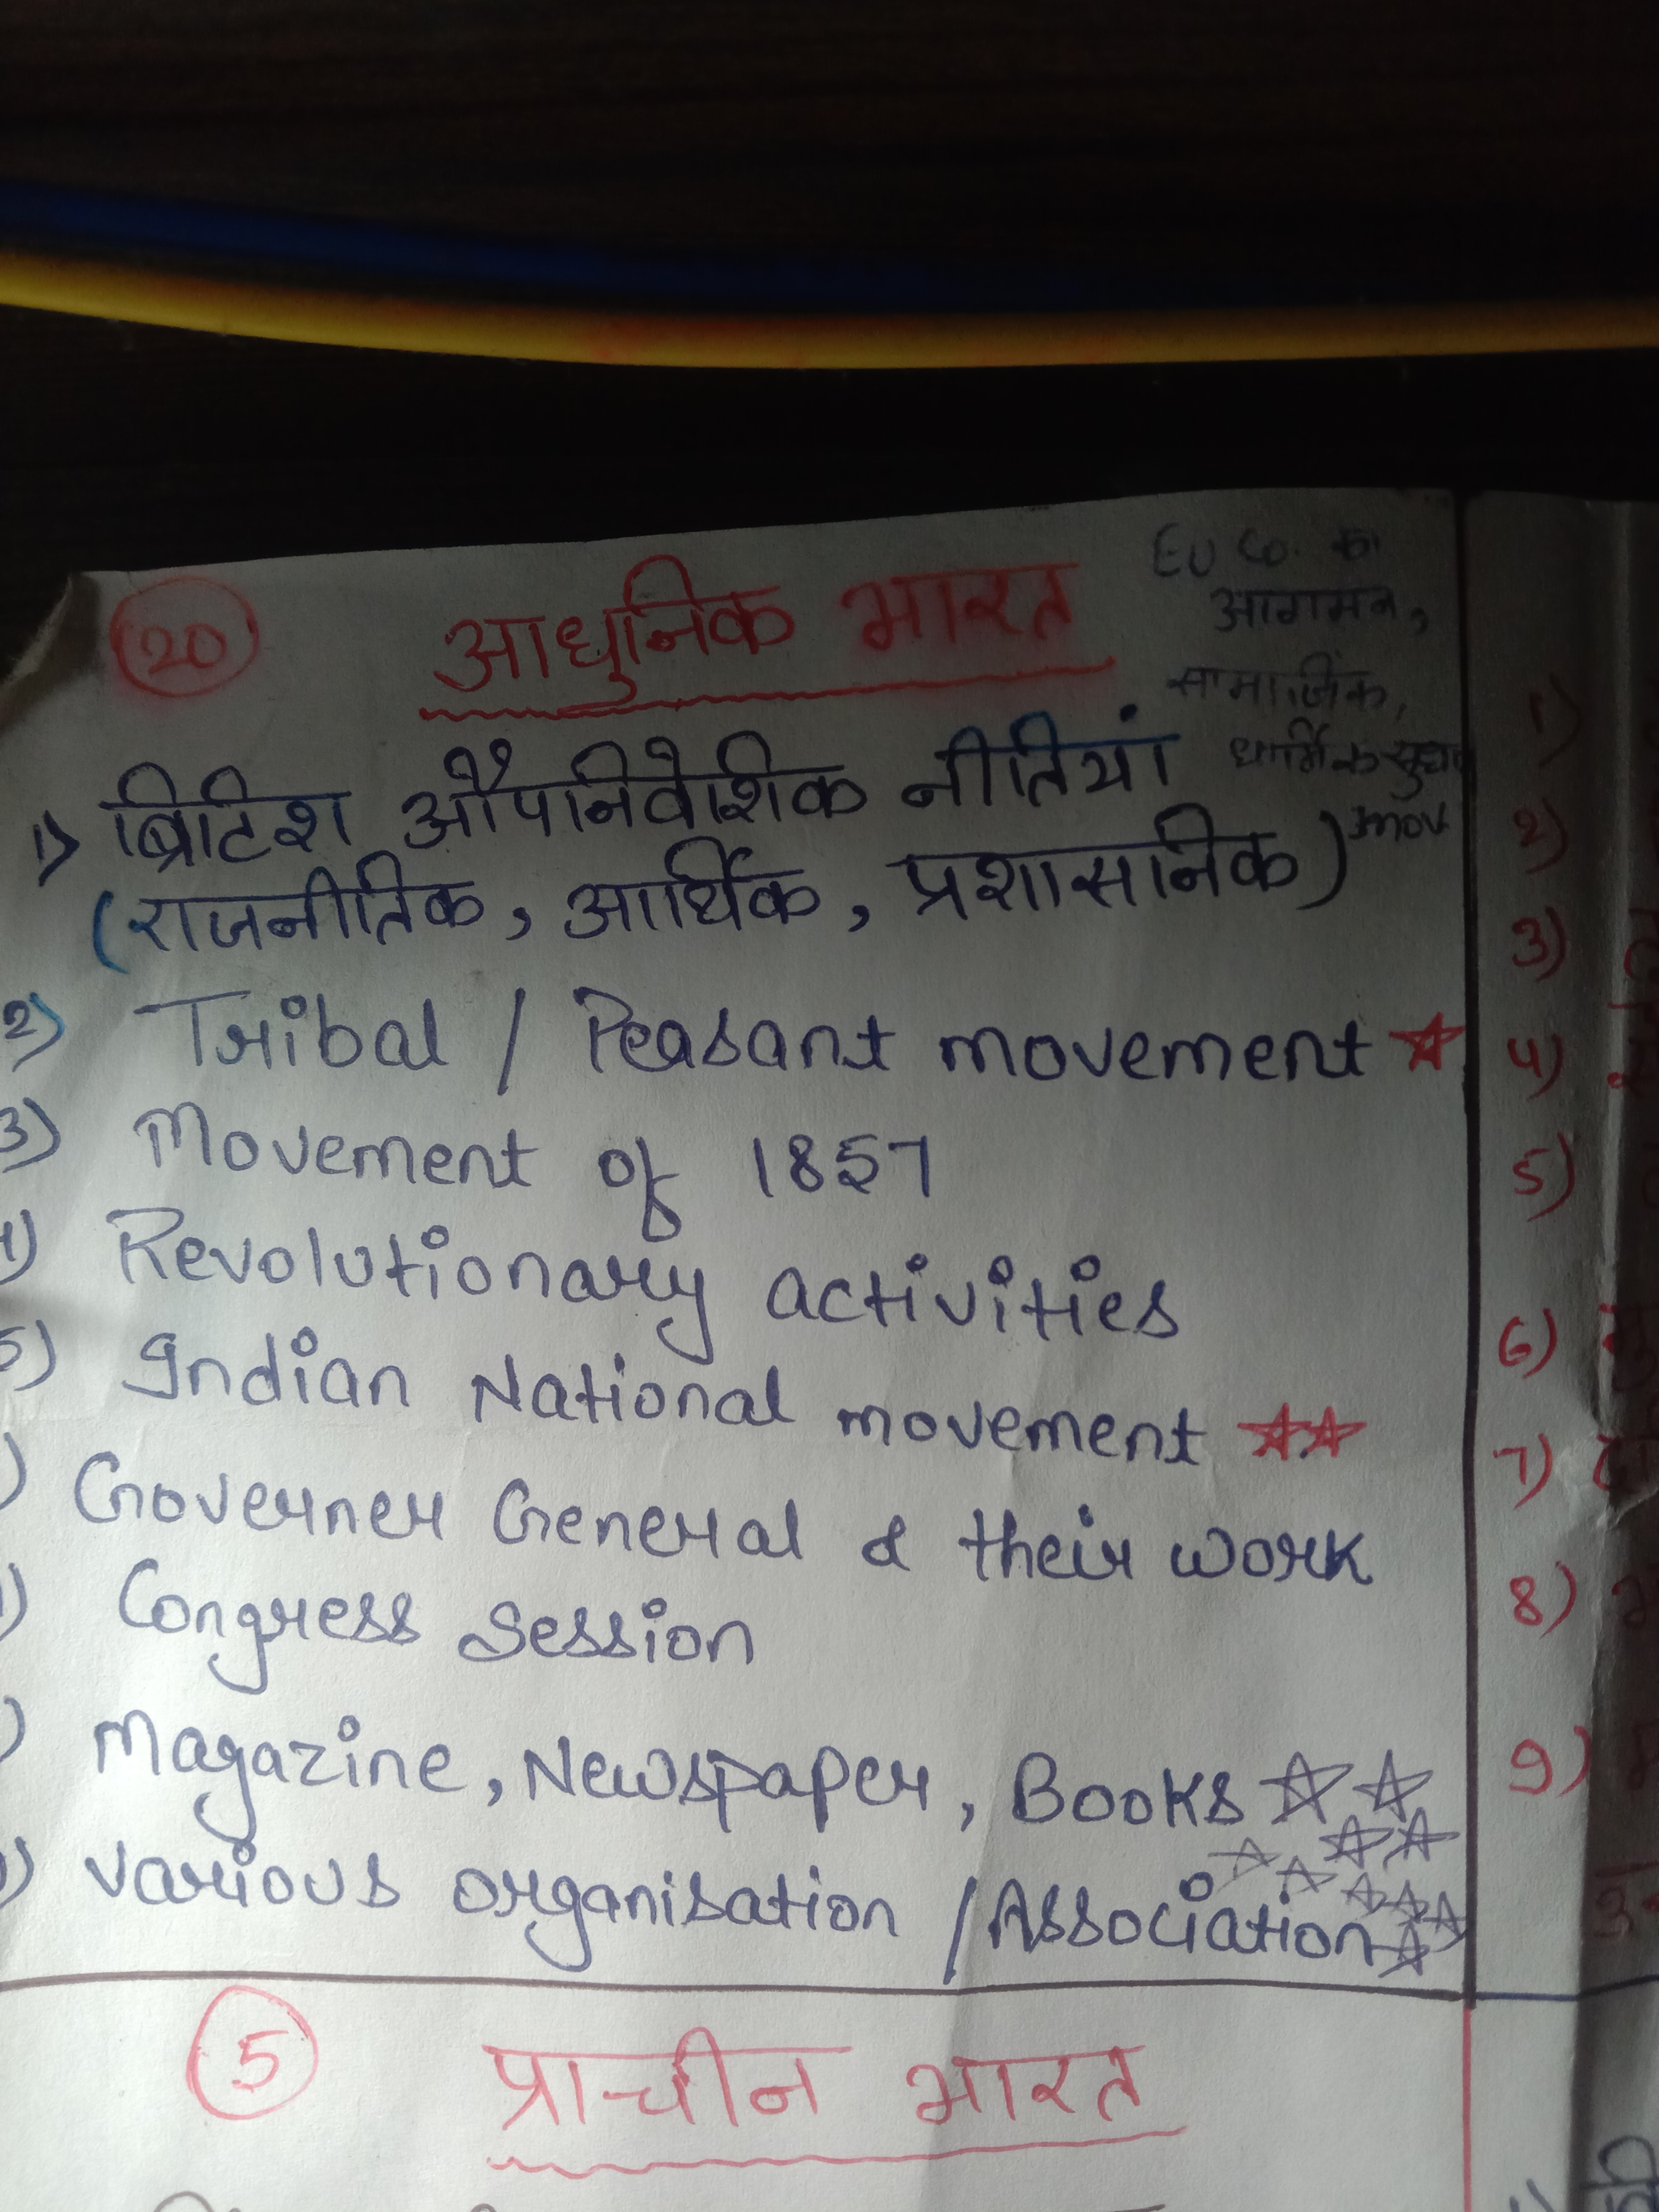 20 आधुनिक भारत
EU Co. का
आगमन,
सामाजिक,
धार्मिक सुधार
mov
1) ब्रिटिश औपनिवेशिक नीतियां
(राजनीतिक, आर्थिक, प्रशासनिक)
2) Tribal / Peasant movement
3) Movement of 1857
4) Revolutionary activities
5) Indian National movement
) Governer General & their work
) Congress Session
) Magazine, Newspaper, Books
) Various organisation / Association
5 प्राचीन भारत
1)
2)
3)
4)
5)
6)
7)
8)
9)